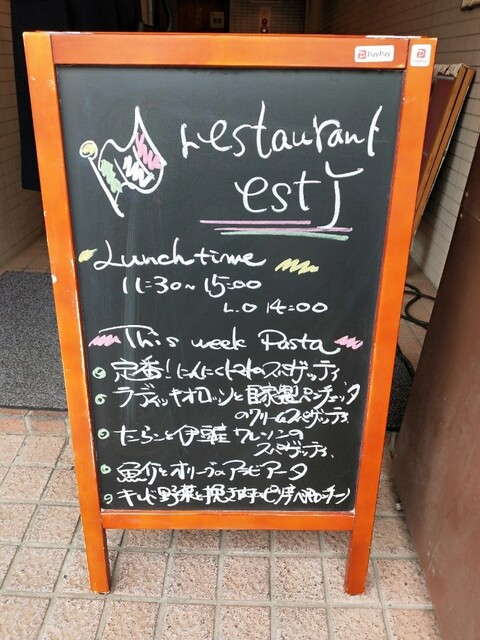 PayPay
PayPay
restaurant
estJ
Lunch time
11:30~15:00
L.O 14:00
This week Pasta
定番!にんにくトマトのスパゲッティ
ラディッキオロッソと自家製パンチェッタ
のクリームスパゲッティ
たらこと伊産 のスパゲッティ
魚介とオリーブのアラビアータ
野菜と挽き肉の